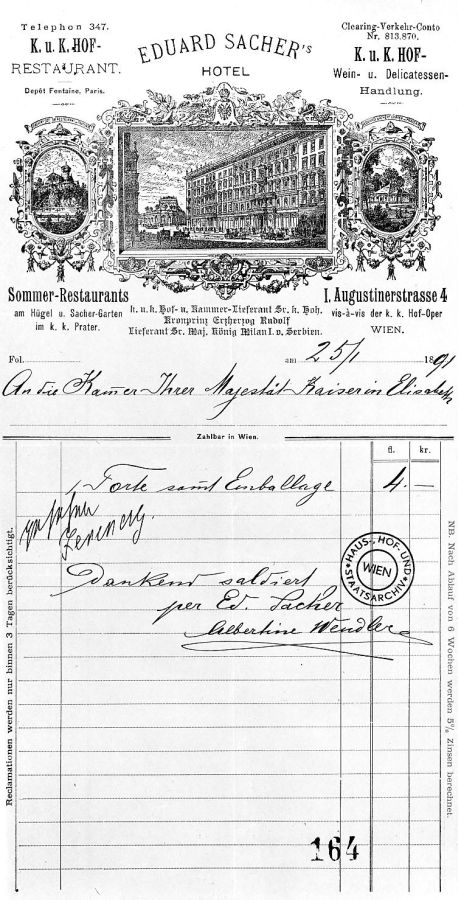 Telephon 347.
K. u. K. HOF-
RESTAURANT.
Depôt Fontaine, Paris.
EDUARD SACHER's
HOTEL
Clearing-Verkehr-Conto
Nr. 813.870.
K. u. K. HOF-
Wein- u. Delicatessen-
Handlung.
Sommer-Restaurants
am Hügel u. Sacher-Garten
im k. k. Prater.
k. u. k. Hof- u. Kammer-Lieferant Sr. k. Hoh.
Kronprinz Erzherzog Rudolf
Lieferant Sr. Maj. König Milan I. v. Serbien.
I. Augustinerstrasse 4
vis-à-vis der k. k. Hof-Oper
WIEN.
Fol. am 25/1 1891
An die Kam̄er Ihrer Majestät Kaiserin Elisabeth
Zahlbar in Wien.
fl. kr.
1 Torte samt Emballage 4. —
Dankend saldiert
per Ed. Sacher
Albertine Wendler
HAUS-, HOF- UND STAATSARCHIV
WIEN
Reclamationen werden nur binnen 3 Tagen berücksichtigt.
NB. Nach Ablauf von 6 Wochen werden 5% Zinsen berechnet.
164